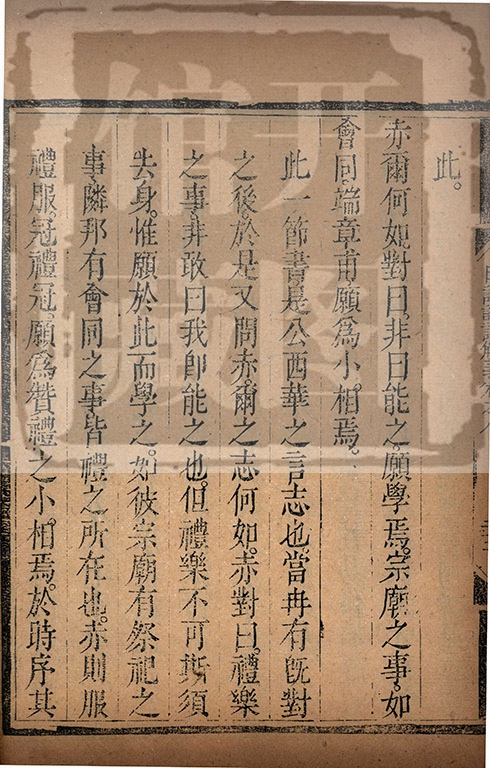 此。
赤爾何如對曰。非曰能之。願學焉。宗廟之事。如
會同。端章甫。願爲小相焉。
此一節書。是公西華之言志也。當冉有旣對
之後。於是又問赤爾之志何如。赤對曰。禮樂
之事。非敢曰我卽能之也。但禮樂不可斯須
去身。惟願於此而學之。如彼宗廟有祭祀之
事。隣邦有會同之事。皆禮之所在也。赤則服
禮服。冠禮冠。願爲贊禮之小相焉。於時序其